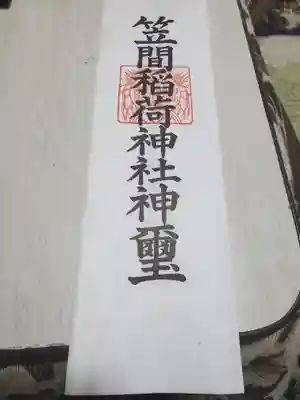 笠間稲荷神社神璽